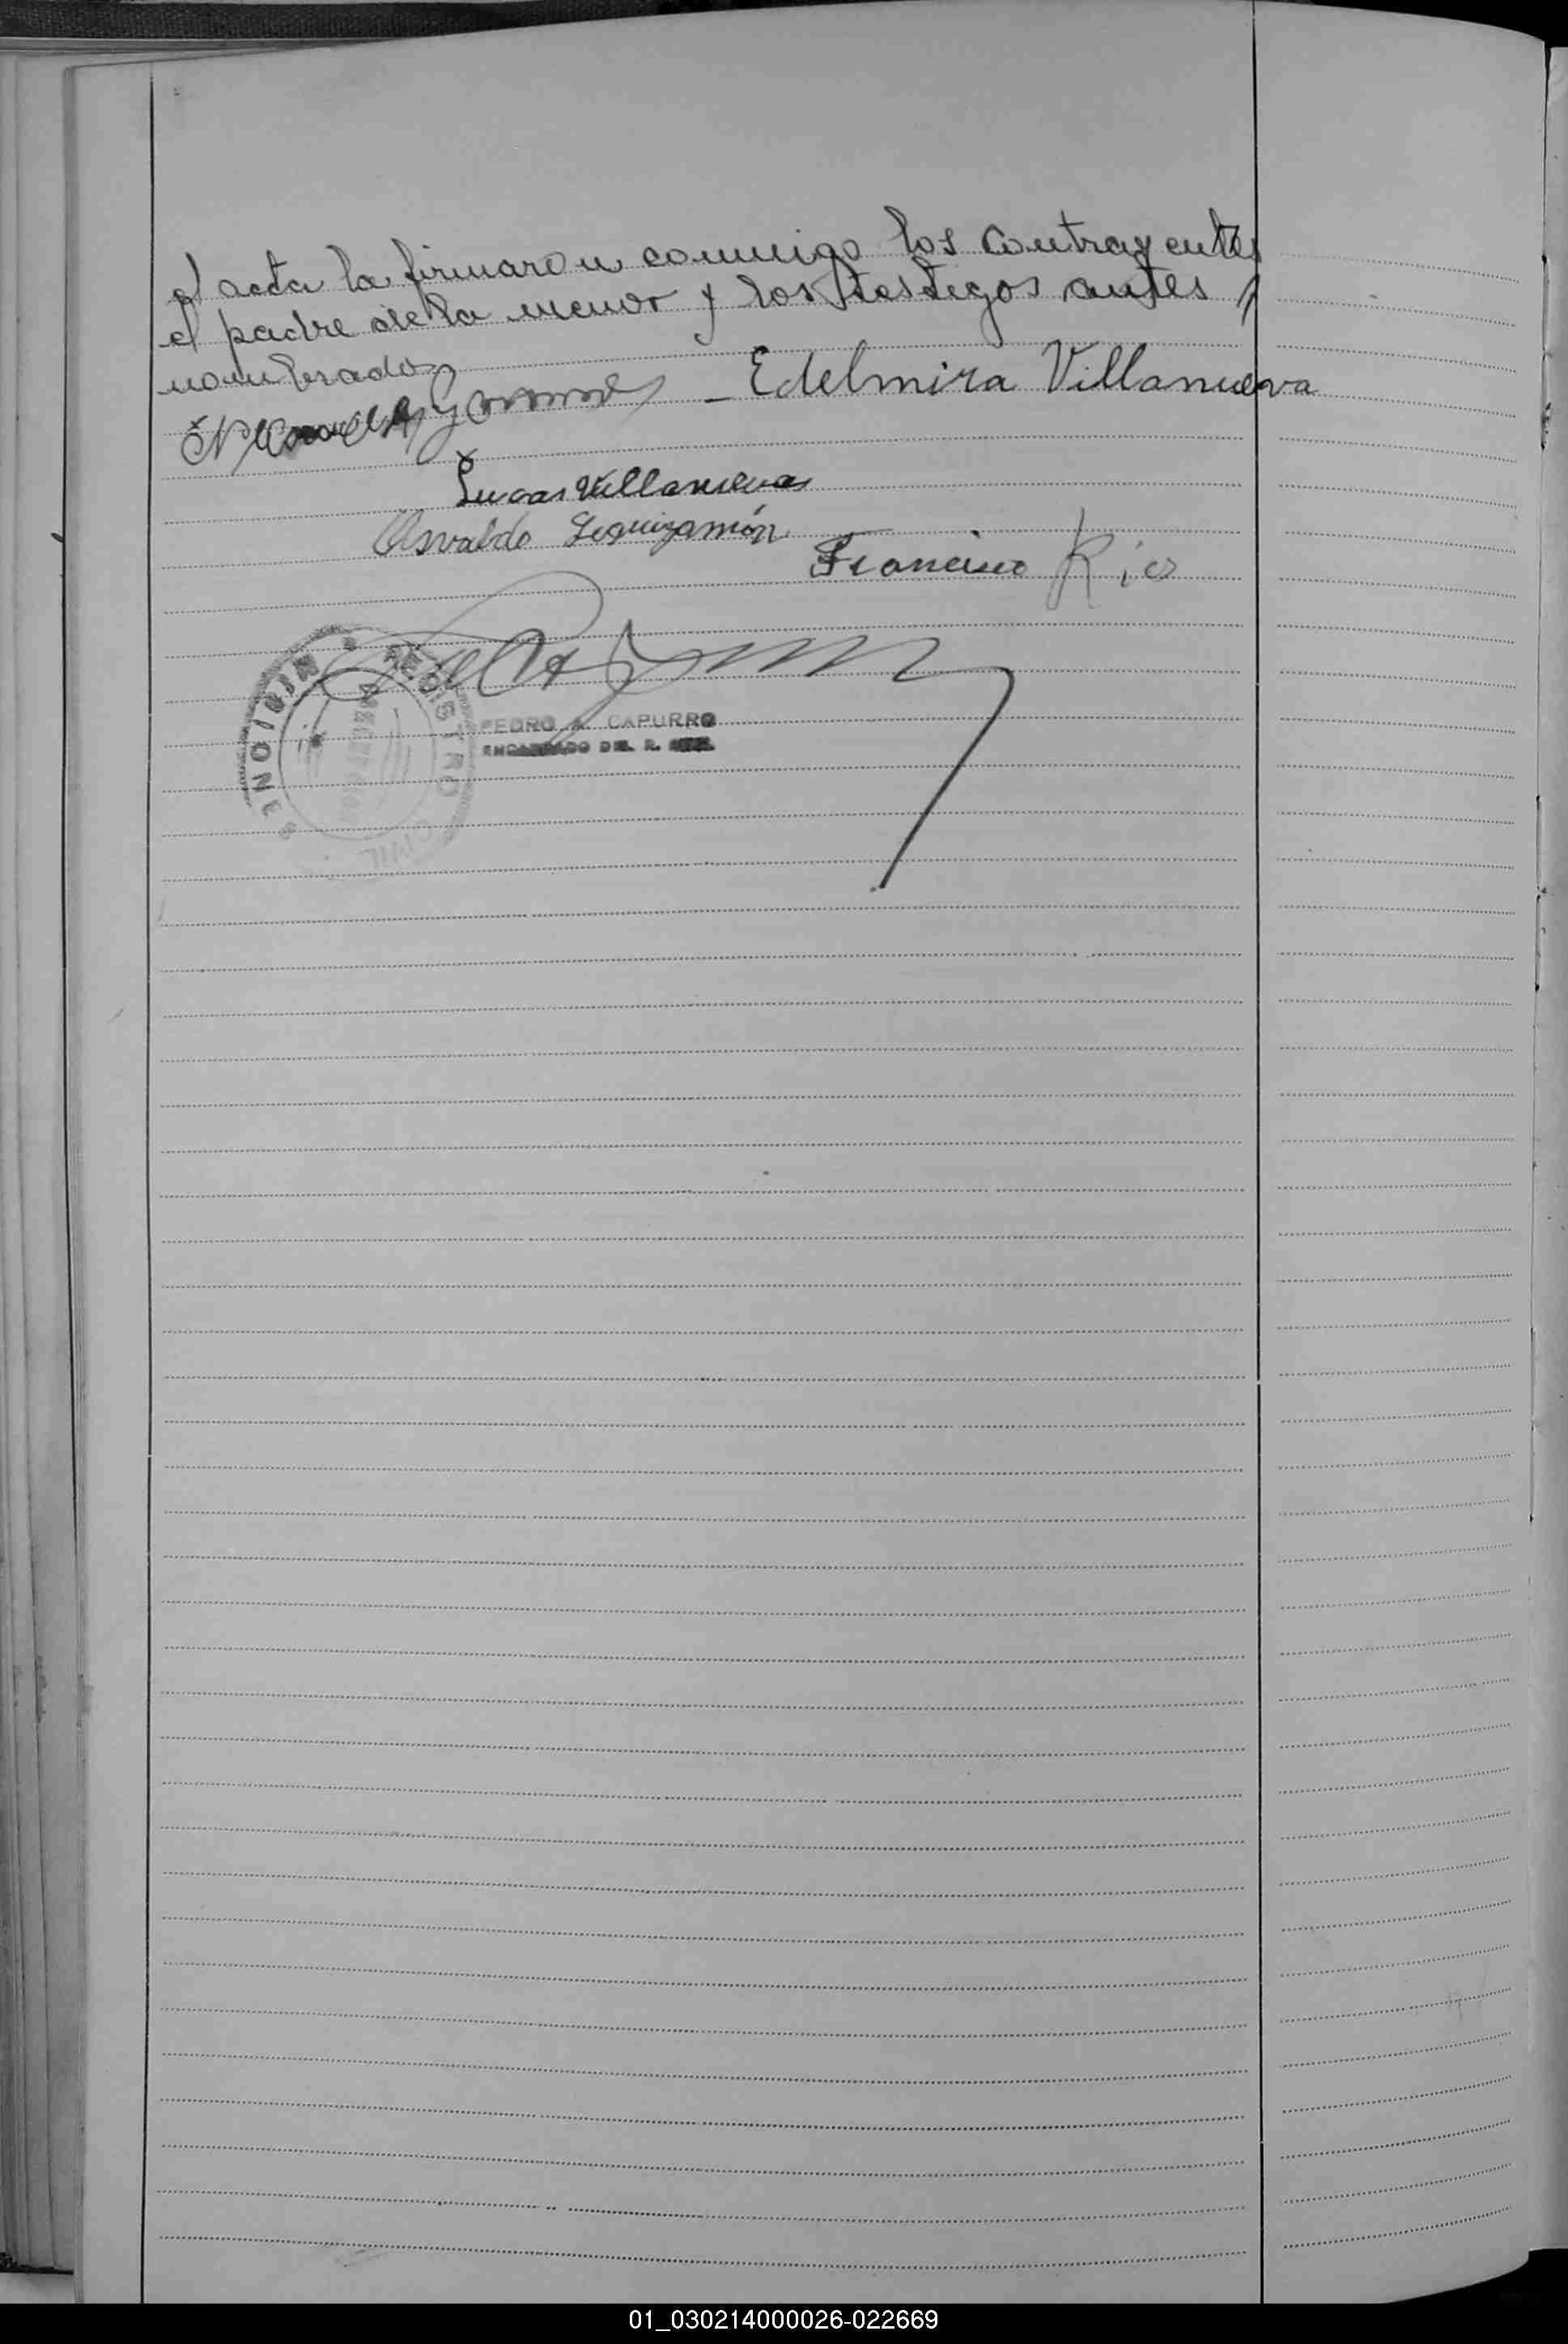 el acta la firmaron conmigo los contrayentes
el padre de la menor y los testigos antes
nombrados
Edelmira Villanueva
Lucas Villanueva
Osvaldo Leguizamón
Francisco Rios
REGISTRO CIVIL
PEDRO A. CAPURRO
ENCARGADO DEL R. CIVIL
01_030214000026-022669